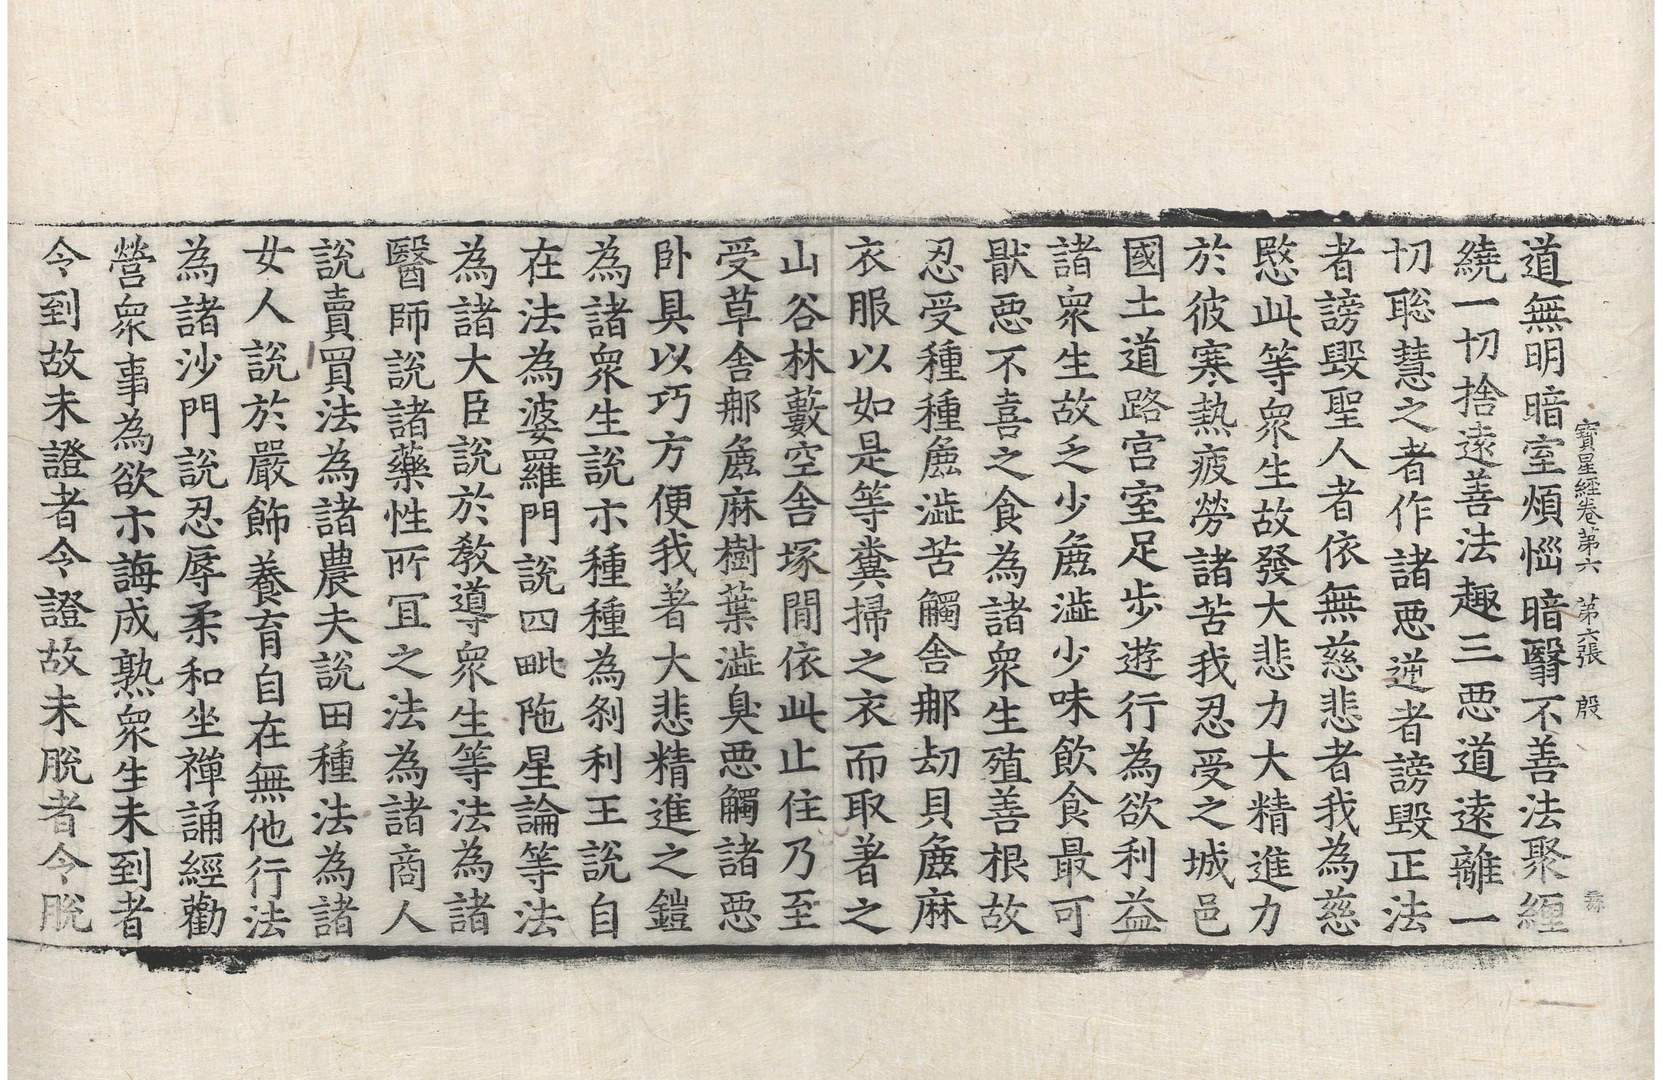 寶星經卷第六 第六張 殷
道無明暗室煩惱暗翳不善法聚纏
繞一切捨遠善法趣三惡道遠離一
切聡慧之者作諸惡逆者謗毀正法
者謗毀聖人者依無慈悲者我為慈
愍此等衆生故發大悲力大精進力
於彼寒熱疲勞諸苦我忍受之城邑
國土道路宮室足步遊行為欲利益
諸衆生故乏少麁澁少味飲食最可
猒惡不喜之食為諸衆生殖善根故
忍受種種麁澁苦觸舍那刼貝麁麻
衣服以如是等糞掃之衣而取著之
山谷林藪空舍塚間依此止住乃至
受草舍那麁麻樹葉澁臭惡觸諸惡
卧具以巧方便我著大悲精進之鎧
為諸衆生說尒種種為刹利王說自
在法為婆羅門說四毗陁星論等法
為諸大臣說於教導衆生等法為諸
醫師說諸藥性所冝之法為諸商人
說賣買法為諸農夫說田種法為諸
女人說於嚴飾養育自在無他行法
為諸沙門說忍辱柔和坐禪誦經勸
營衆事為欲尒誨成熟衆生未到者
令到故未證者令證故未脫者令脫